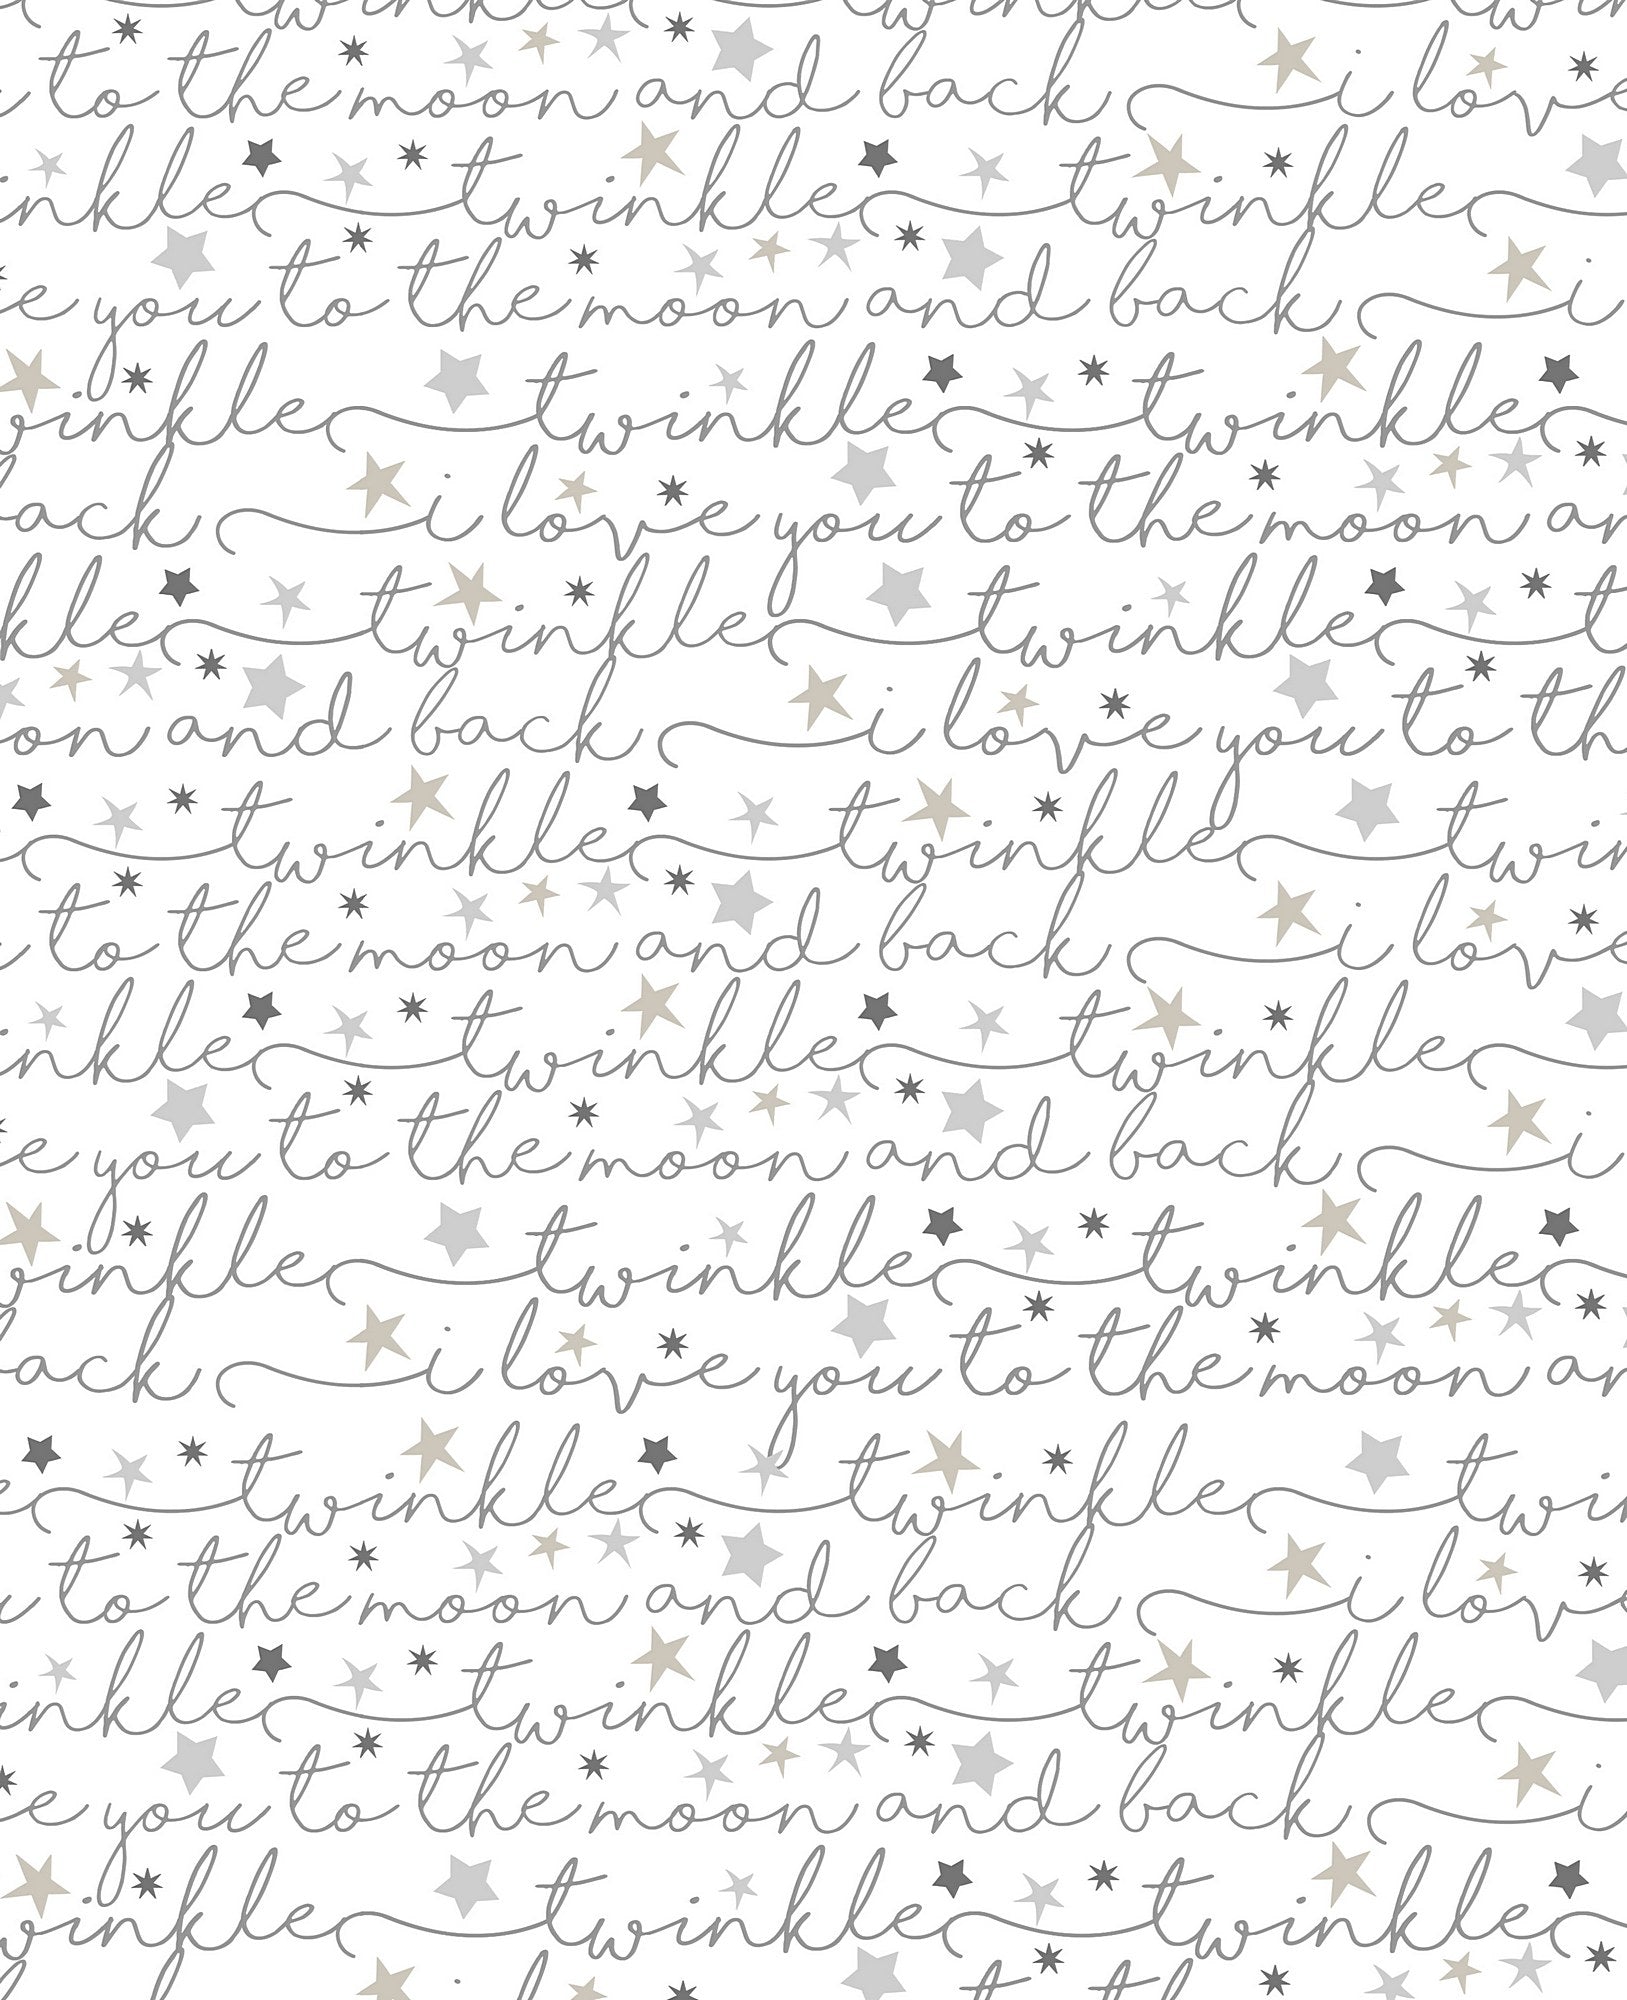 twinkle twinkle
to the moon and back i love
inkle twinkle twinkle
e you to the moon and back i
winkle twinkle twinkle
back i love you to the moon an
kle twinkle twinkle t
oon and back i love you to th
twinkle twinkle twin
to the moon and back i love
inkle twinkle twinkle
e you to the moon and back i
winkle twinkle twinkle
back i love you to the moon an
e twinkle twinkle twin
u to the moon and back i love
inkle twinkle twinkle
e you to the moon and back i
winkle twinkle twinkle